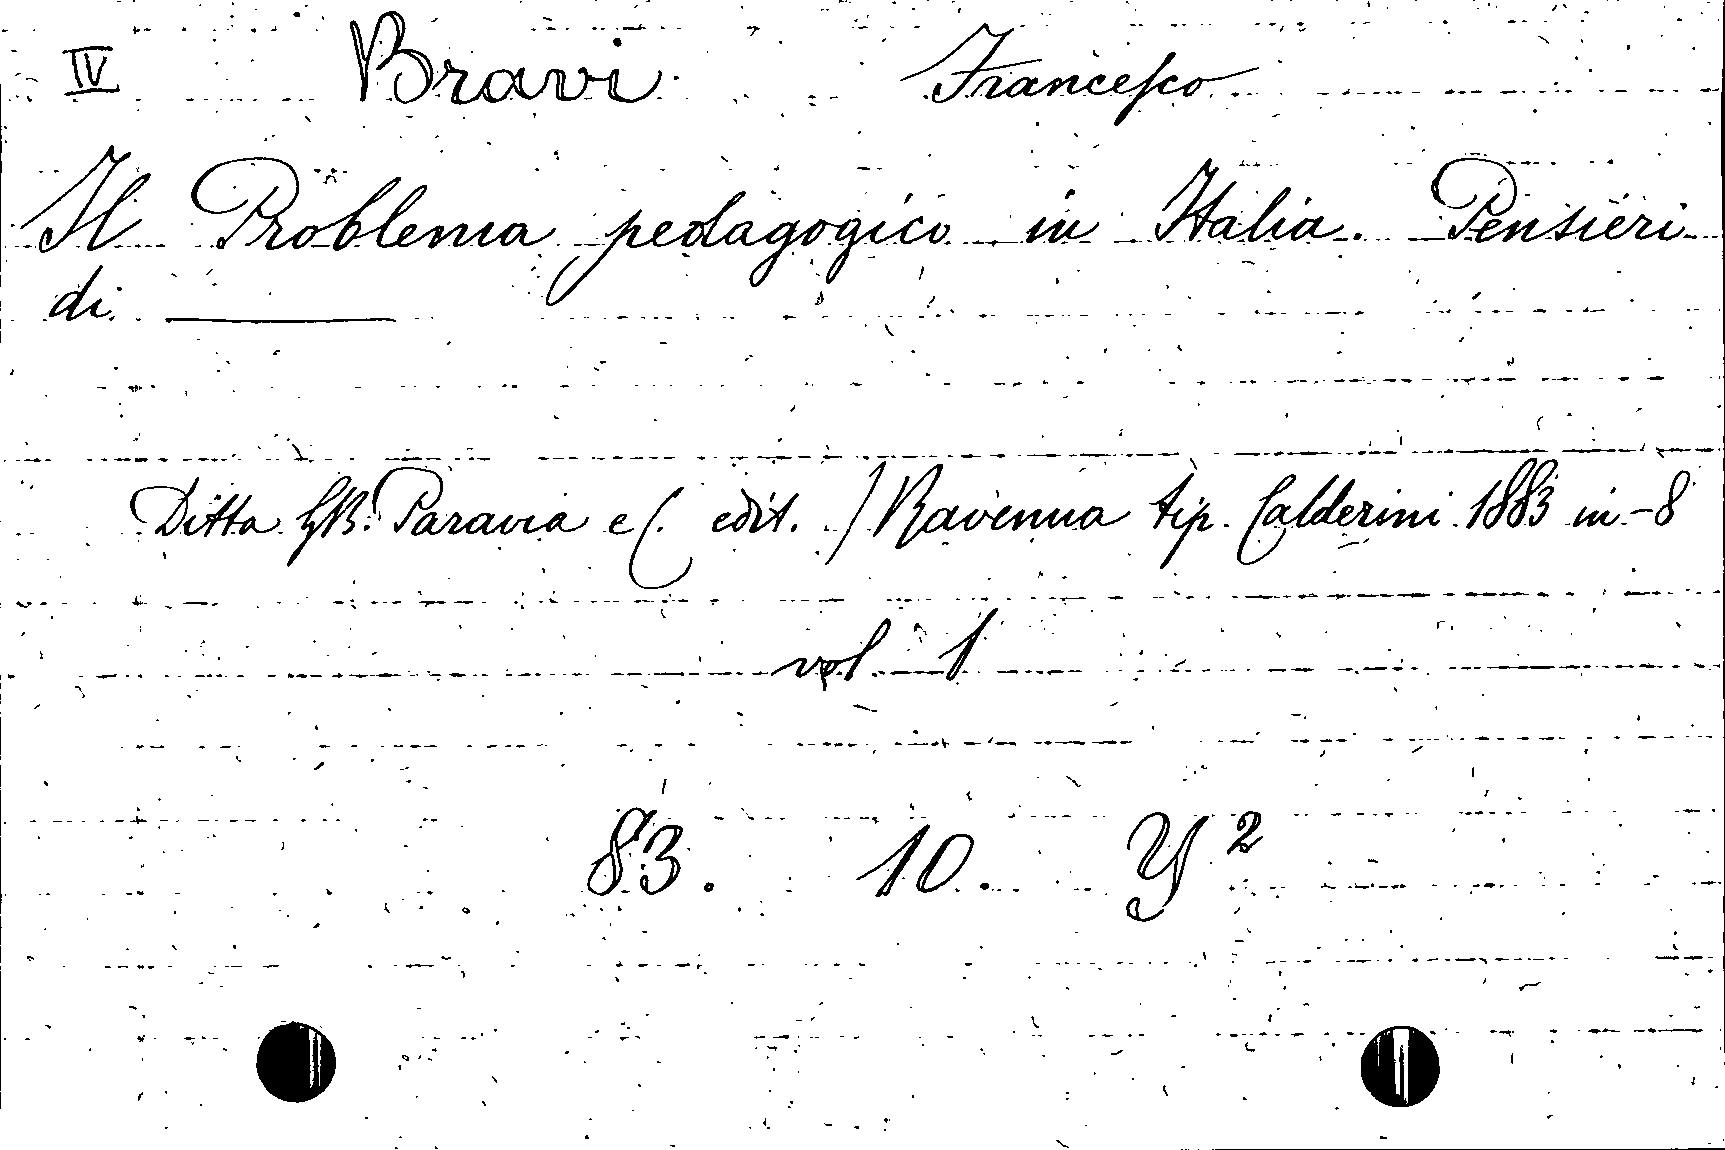 IV Bravi Francesco
Il Problema pedagogico in Italia. Pensieri
di ———
Ditta G.B. Paravia e C. edit. / Ravenna tip. Calderini 1883 in-8
vol. 1
83. 10. Y²